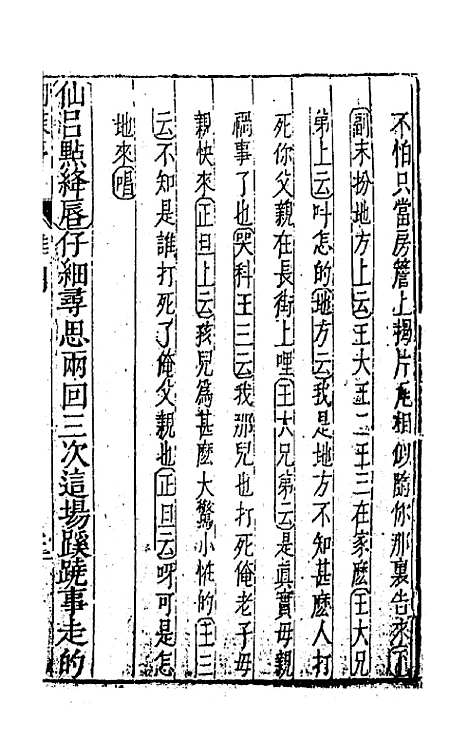 不怕只當房簷上揭片瓦相似隨你那裏告來下
副末扮地方上云王大王二王三在家麽王大兄
弟上云叫怎的地方云我是地方不知甚麽人打
死你父親在長街上哩王大兄弟云是眞實母親
禍事了也哭科王三云我那兒也打死俺老子母
親快來正旦上云孩兒爲甚麽大驚小怪的王三
云不知是誰打死了俺父親也正旦云呀可是怎
地來唱
仙呂點絳唇仔細尋思兩回三次這場蹊蹺事走的